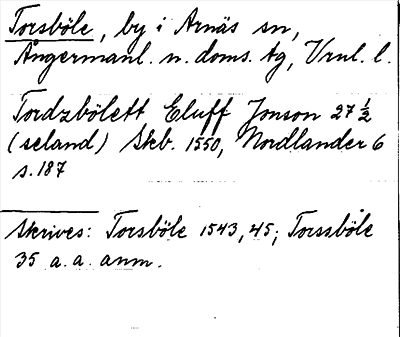 Torsböle, by i Arnäs sn,
Ångermanl. n. doms. tg, Vrnl. l.
Tordzbölett Eluff Jonson 27 ½
(seland) Skb. 1550, Nordlander 6
s. 187
Skrives: Torsböle 1543, 45; Torssböle
35 a. a. anm.